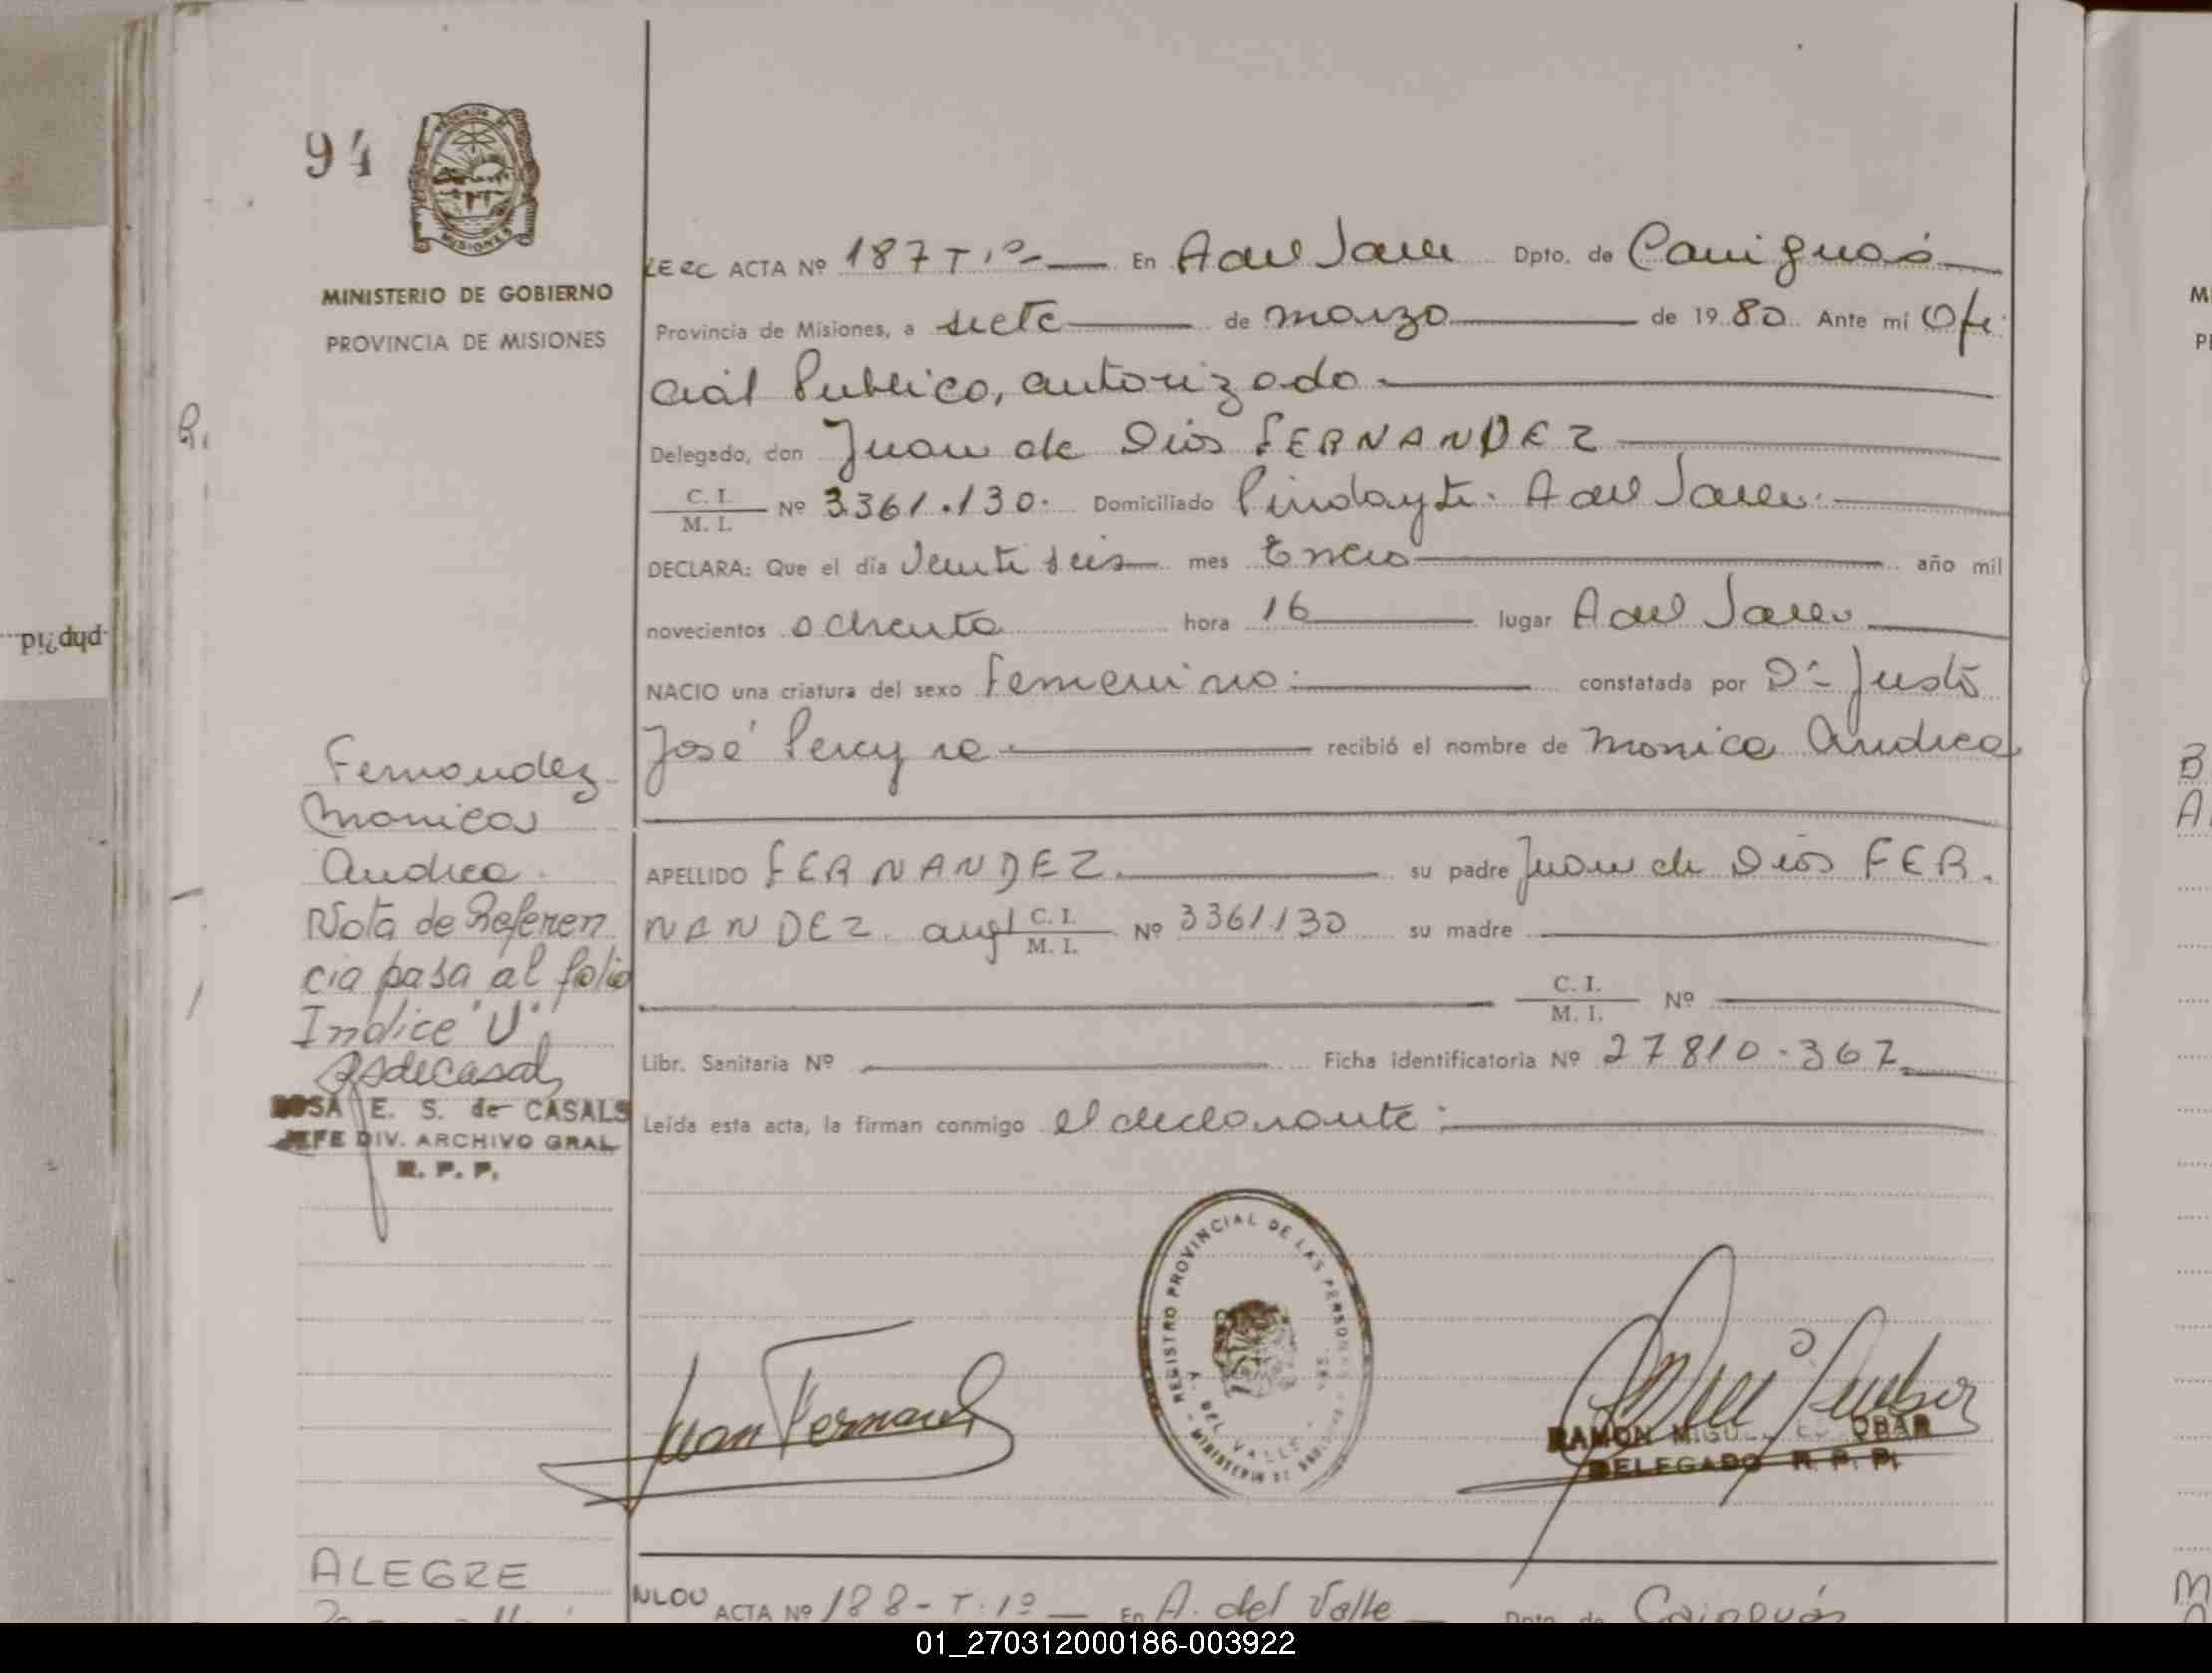 94
PROVINCIA DE MISIONES
MINISTERIO DE GOBIERNO
PROVINCIA DE MISIONES
LERC ACTA Nº 187 T 1º En A del Valle Dpto. de Cainguás
Provincia de Misiones, a siete de marzo de 1980. Ante mí Ofi
cial Publico, autorizado
Delegado, don Juan de Dios FERNANDEZ
C. I. / M. I. Nº 3361.130. Domiciliado Pindayti. A del Valle.
DECLARA: Que el día Veinti seis mes Enero año mil
novecientos ochenta hora 16 lugar A del Valle
NACIO una criatura del sexo Femenino. constatada por Dº Justo
José Pereyra recibió el nombre de Monica Andrea
Fernandez
Monica
Andrea.
Nota de Referen
cia pasa al folio
Indice "U"
ROSA E. S. de CASALS
JEFE DIV. ARCHIVO GRAL
R. P. P.
APELLIDO FERNANDEZ. su padre Juan de Dios FER.
NANDEZ. arg C. I. / M. I. Nº 3361.130 su madre
C. I. / M. I. Nº
Libr. Sanitaria Nº Ficha identificatoria Nº 27810.367
Leída esta acta, la firman conmigo el declarante.
REGISTRO PROVINCIAL DE LAS PERSONAS
A. DEL VALLE
MINISTERIO DE
Juan Fernand
RAMON MIGUEL ESCOBAR
DELEGADO R. P. P.
ALEGRE
NLOU ACTA Nº 188 - T. 1º En A. del Valle Dpto. de Cainguás
php?id
01_270312000186-003922